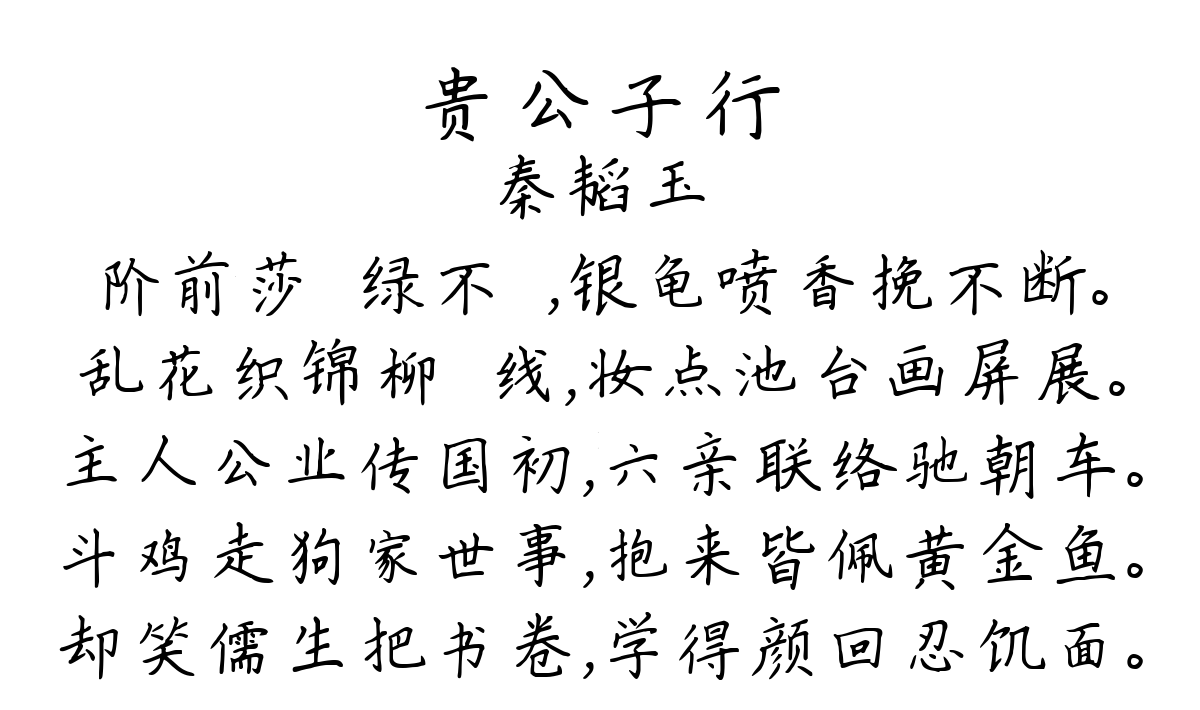 贵公子行
秦韬玉
阶前莎 绿不 ,银龟喷香挽不断。
乱花织锦柳 线,妆点池台画屏展。
主人公业传国初,六亲联络驰朝车。
斗鸡走狗家世事,抱来皆佩黄金鱼。
却笑儒生把书卷,学得颜回忍饥面。